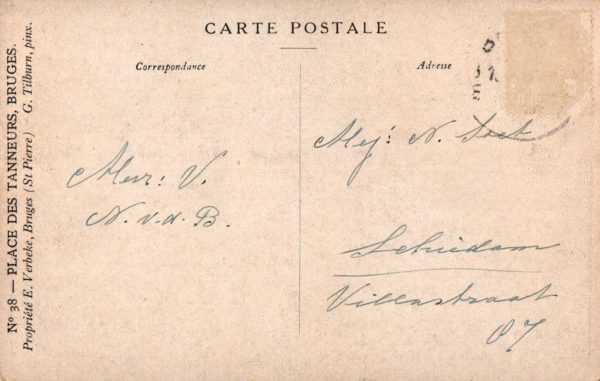 CARTE POSTALE
Correspondance
Adresse
Mej: N.
Mevr: V.
N. v. d. B.
Schiedam
Villastraat
Nº 38 — PLACE DES TANNEURS, BRUGES.
Propriété E. Verbeke, Bruges (St Pierre) G. Tilburn, pinx.